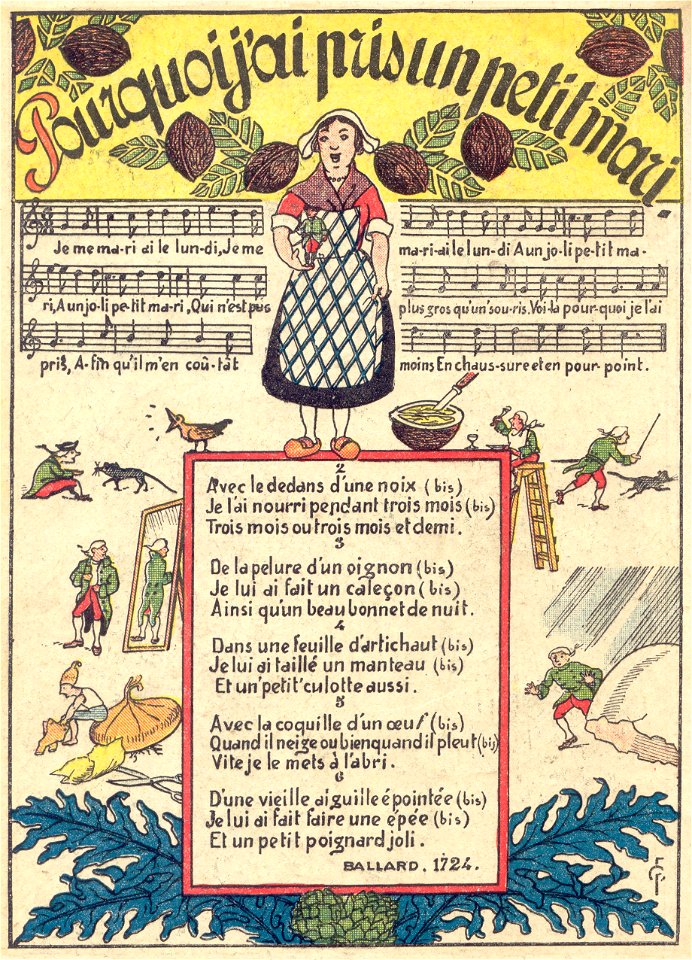 Pourquoi j'ai pris un petit mari.
Je me ma-ri ai le lun-di, Je me
ma-ri-ai le lun-di A un jo-li pe-tit ma-
ri, A un jo-li pe-tit ma-ri, Qui n'est pas
plus gros qu'un' sou-ris. Voi-là pour-quoi je l'ai
pris, A-fin qu'il m'en coû-tât
moins En chaus-sure et en pour-point.
2
Avec le dedans d'une noix (bis)
Je l'ai nourri pendant trois mois (bis)
Trois mois ou trois mois et demi.
3
De la pelure d'un oignon (bis)
Je lui ai fait un caleçon (bis)
Ainsi qu'un beau bonnet de nuit.
4
Dans une feuille d'artichaut (bis)
Je lui ai taillé un manteau (bis)
Et un' petit' culotte aussi.
5
Avec la coquille d'un œuf (bis)
Quand il neige ou bien quand il pleut (bis)
Vite je le mets à l'abri.
6
D'une vieille aiguille épointée (bis)
Je lui ai fait faire une épée (bis)
Et un petit poignard joli.
BALLARD. 1724.